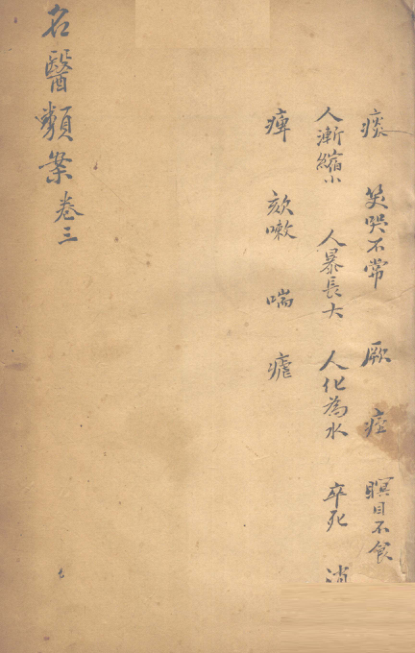 痰 笑哭不常 厥 痓 瞑目不食
人漸縮小 人暴長大 人化為水 卒死 消
痺 欬嗽 喘 瘧
名醫類案 卷三